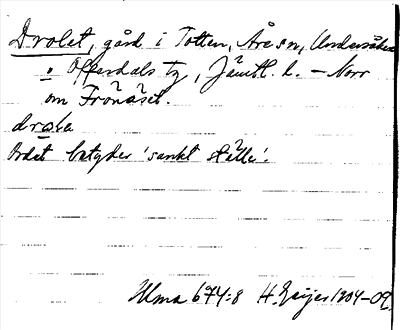 Drolet, gård i Totten, Åre sn, Undersåkers
o Offerdals tg, Jämtl. l. – Norr
om Frönäset.
drola
Ordet betyder 'sankt ställe'.
Ulma 674:8 H. Geijer 1904–09.